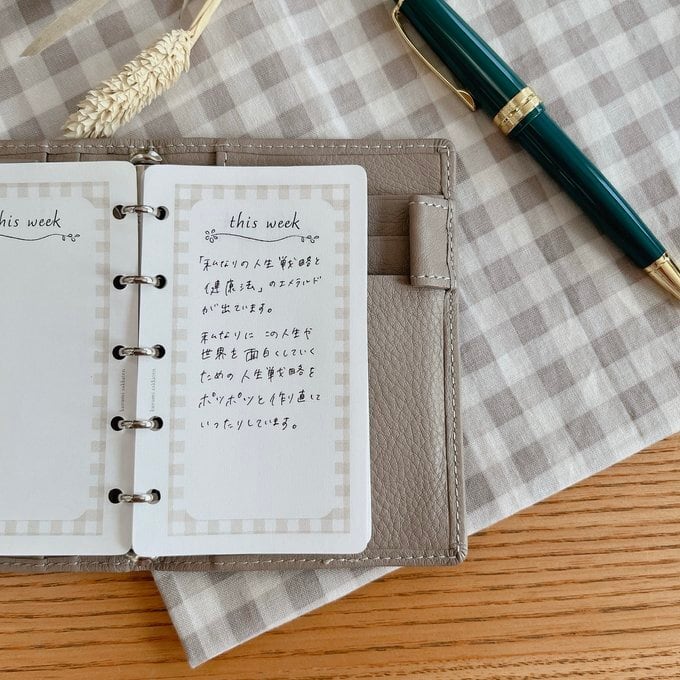 his week
this week
「私なりの人生戦略と
健康法」のエメラルド
が出ています。
私なりに この人生や
世界を面白くしていく
ための 人生戦略を
ポツポツと作り直して
いったりしています。